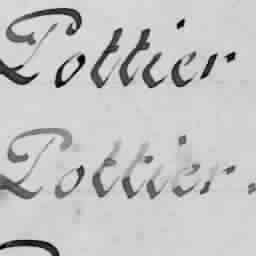 Pottier
Pottier.